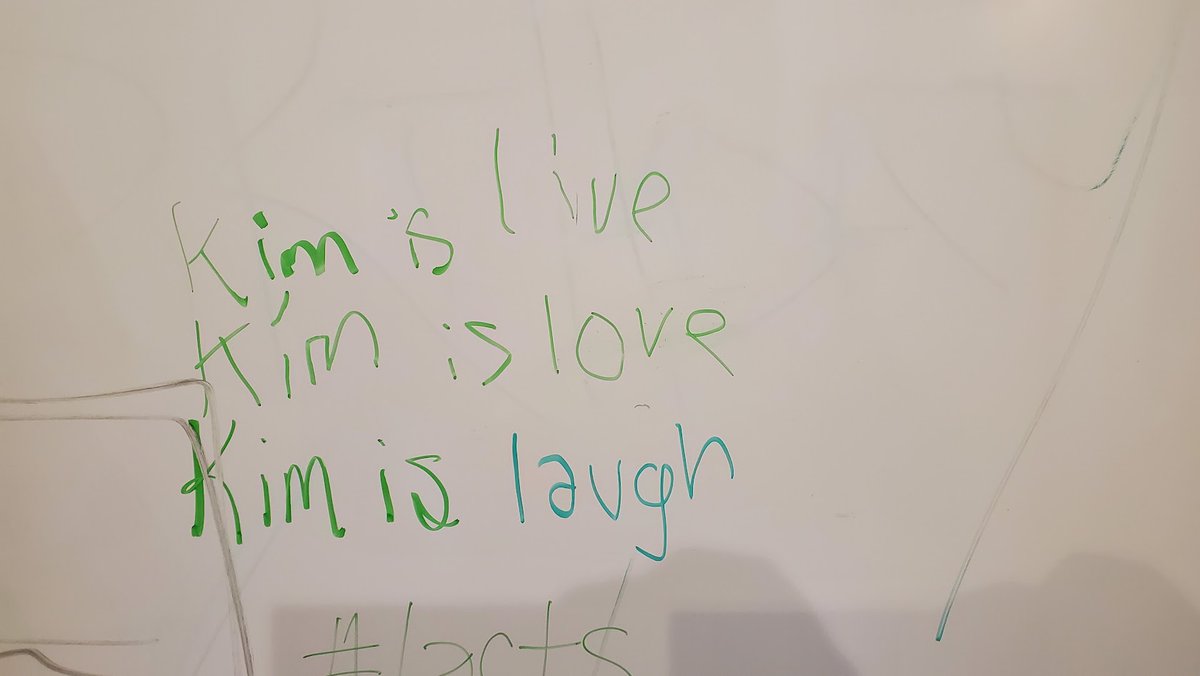 Kim is live
Kim is love
Kim is laugh
#facts